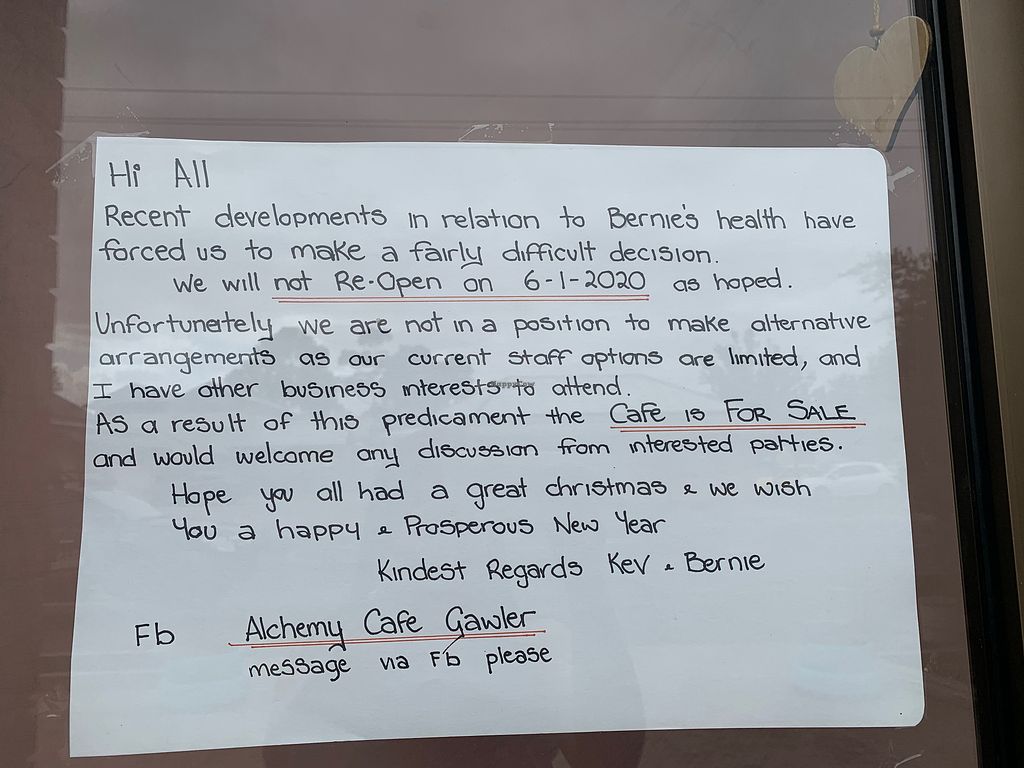 Hi All
Recent developments in relation to Bernie's health have
forced us to make a fairly difficult decision.
We will not Re-Open on 6-1-2020 as hoped.
Unfortunately we are not in a position to make alternative
arrangements as our current staff options are limited, and
I have other business interests to attend.
As a result of this predicament the Cafe is FOR SALE
and would welcome any discussion from interested parties.
Hope you all had a great christmas & we wish
You a happy & Prosperous New Year
Kindest Regards Kev & Bernie
Fb Alchemy Cafe Gawler
message via Fb please
HappyCow